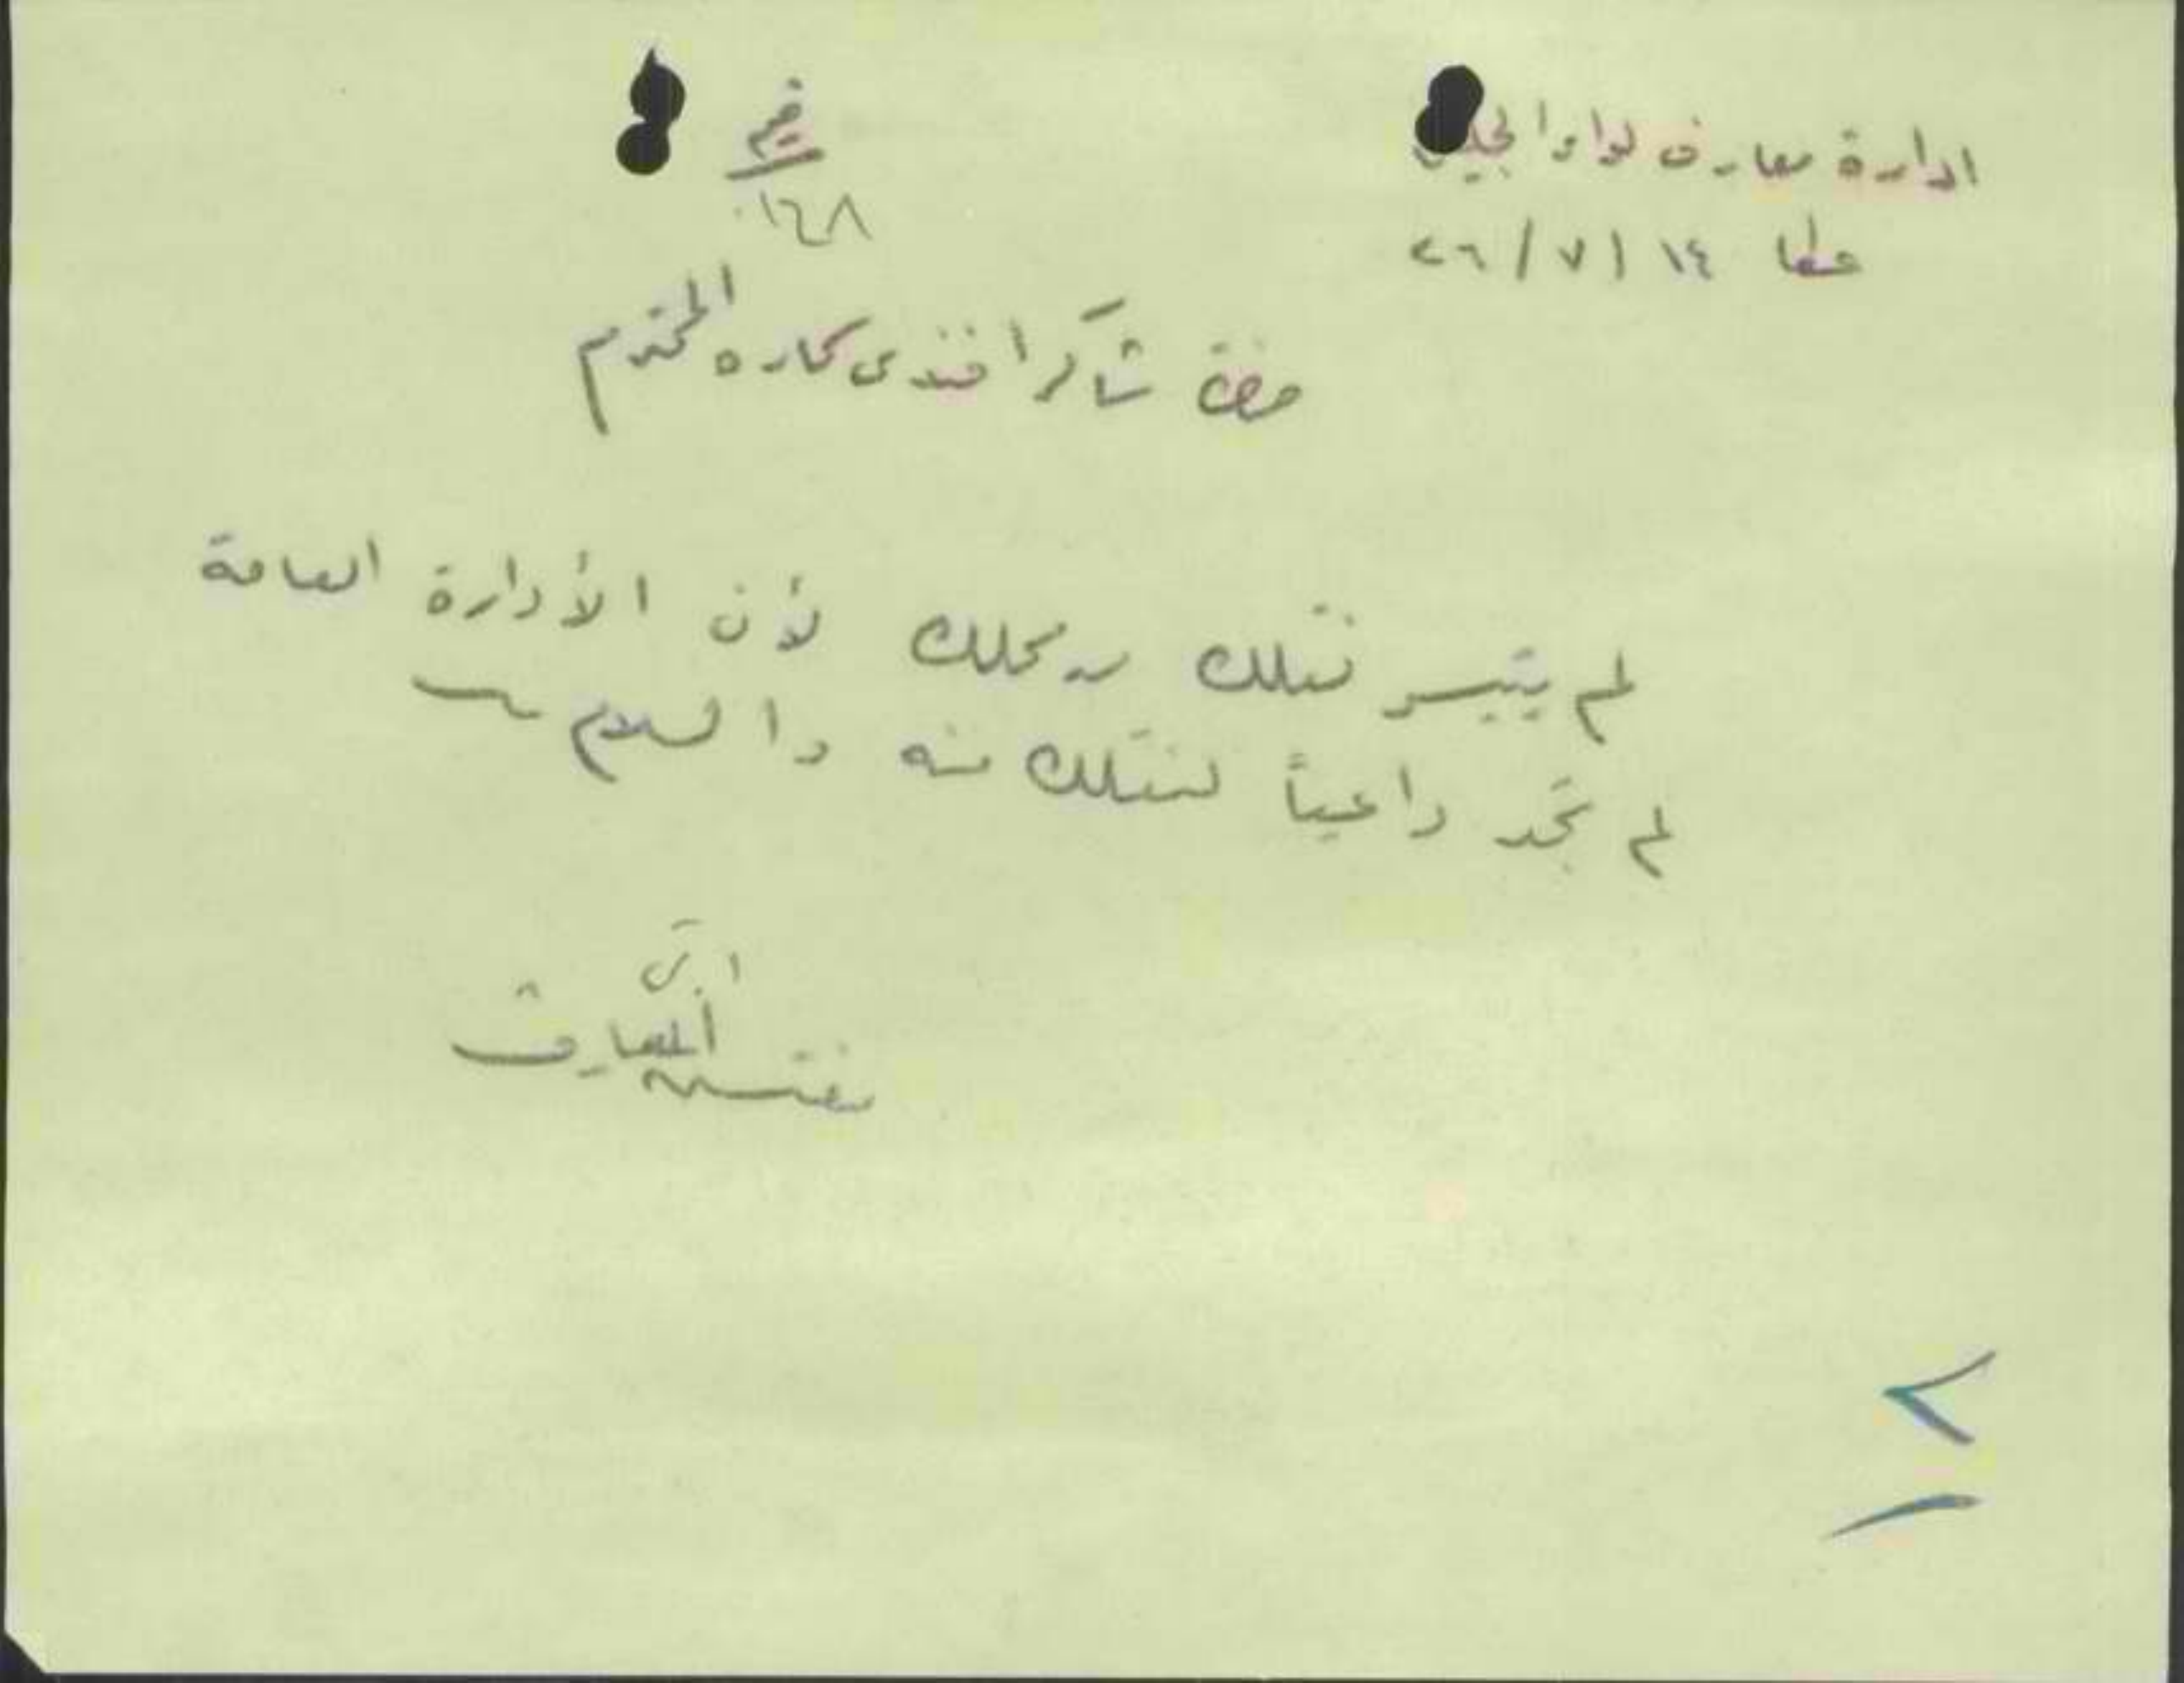 ادارة معارف لواء الجليل
عكا ١٤ / ٧ / ٢٦
١٦٨
حضرة شاكر افندي المحترم
لم يتيسر نقلك من محلك لأن الأدارة العامة
لم تجد داعياً لنقلك منه والسلام
مفتش المعارف